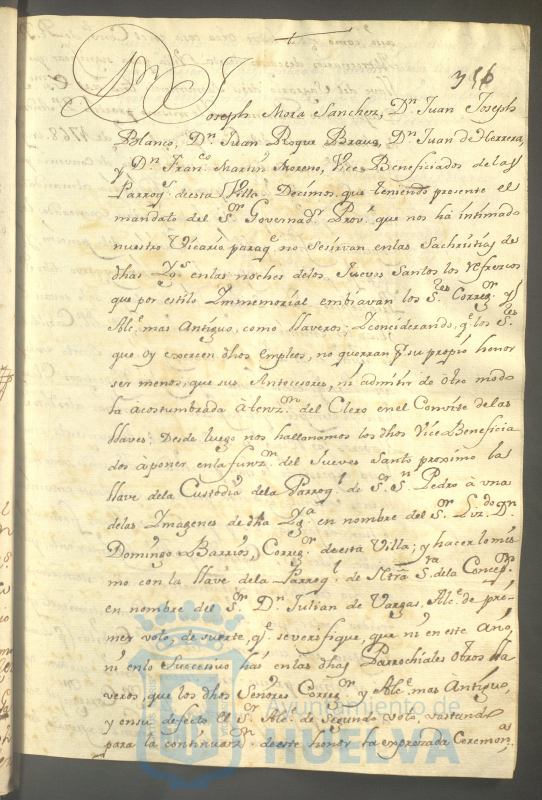 356
Dn Joseph Mora Sanchez, Dn Juan Joseph
Blanco, Dn Juan Roque Bravo, Dn Juan de Herrera,
y Dn Franco Martin Moreno, Vice Beneficiados de las
Parroqs de esta Villa. Decimos, que teniendo presente el
mandato del Sr Governador Provr que nos há intimado
nuestro Vicario para qe no se sirvan en las Sachristias de
dhas Yglas en las noches de los Jueves Santos los refrescos
que por estilo Ymmemorial embiavan los Sres Corregr y
Alce mas Antiguo, como llaveros; Y conciderando, qe los Sres
que oy exercen dhos empleos, no querran pr su propio honor
ser menos que sus Antecesores, ni admitir de otro modo
la acostumbrada atenzon del Clero en el Convite de las
llaves: Desde luego nos hallanamos los dhos Vice Beneficia
dos à poner en la funzon del Jueves Santo proximo la
llave de la Custodia de la Parroql de Sor Sn Pedro à una
de las Ymagenes de dha Ygla en nombre del Sr Lizdo Dn
Domingo Barrios, Corregr de esta Villa; y hacer lo mis
mo con la llave de la Parroql de Ntra Sra de la Concepon
en nombre del Sr Dn Julian de Vargas, Alce de pri
mer voto, de suerte, qe se verifique, que ni en este Año,
ni en lo Succesivo hás en las dhas Parrochiales otros lla
veros, que los dhos Señores Corregr y Alce mas Antiguo,
y en su defecto el Sr Alce de Segundo voto, vastando
para la continuazon de este honor la exprezada Ceremona
Ayuntamiento de
HUELVA